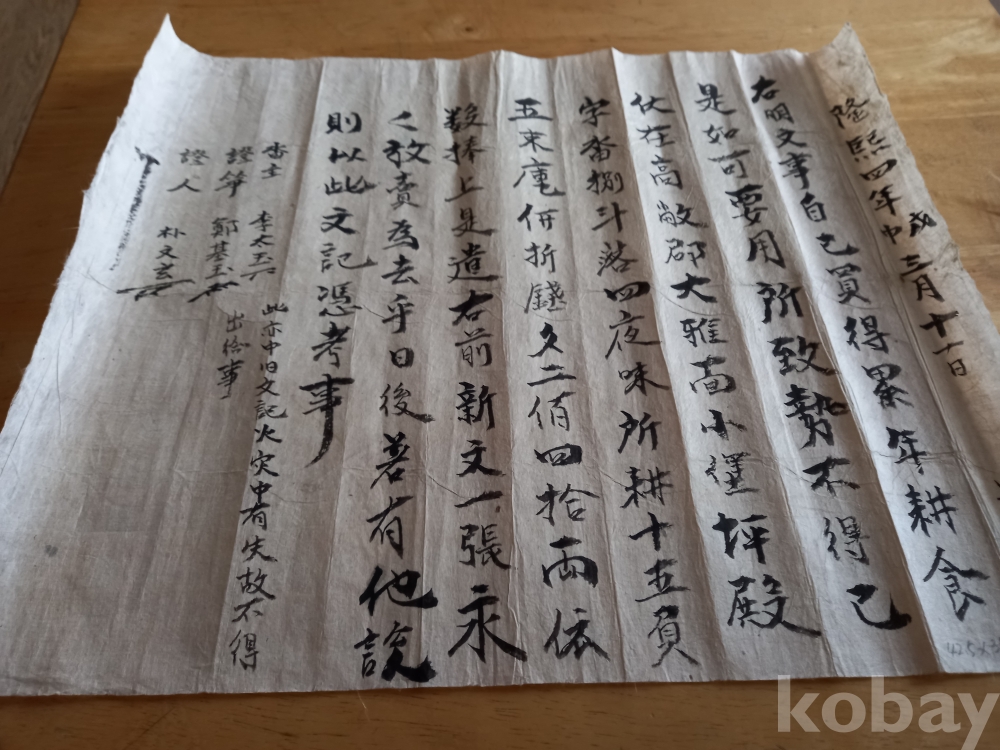 隆熙四年庚戌三月十一日
右明文事自己買得累年耕食
是如可要用所致勢不得已
伏在高敞郡大雅面小 坪殿
字畓捌斗落四夜味所耕十五負
五束庫併折錢文二佰四拾兩依
数捧上是遣右前新文一張永
〻放賣為去乎日後若有他說
則以此文記憑考事
畓主 李太玉
證筆 鄭基玉
證人 朴文玄
此亦中旧文記火灾中有失故不得
出給事
kobay